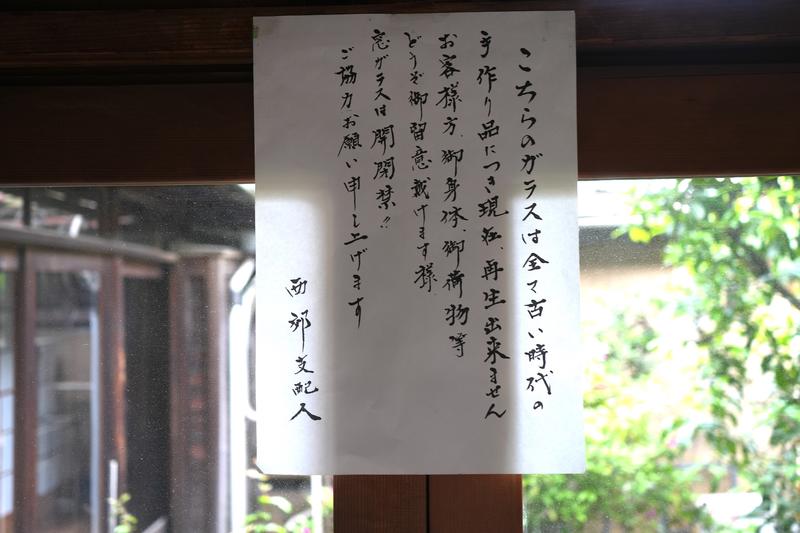 こちらのガラスは全て古い時代の
手作り品につき現在、再生出来ません
お客様方、御身体、御荷物等
どうぞ御留意戴けます様
窓ガラスは開閉禁!!
ご協力お願い申し上げます
西郊支配人